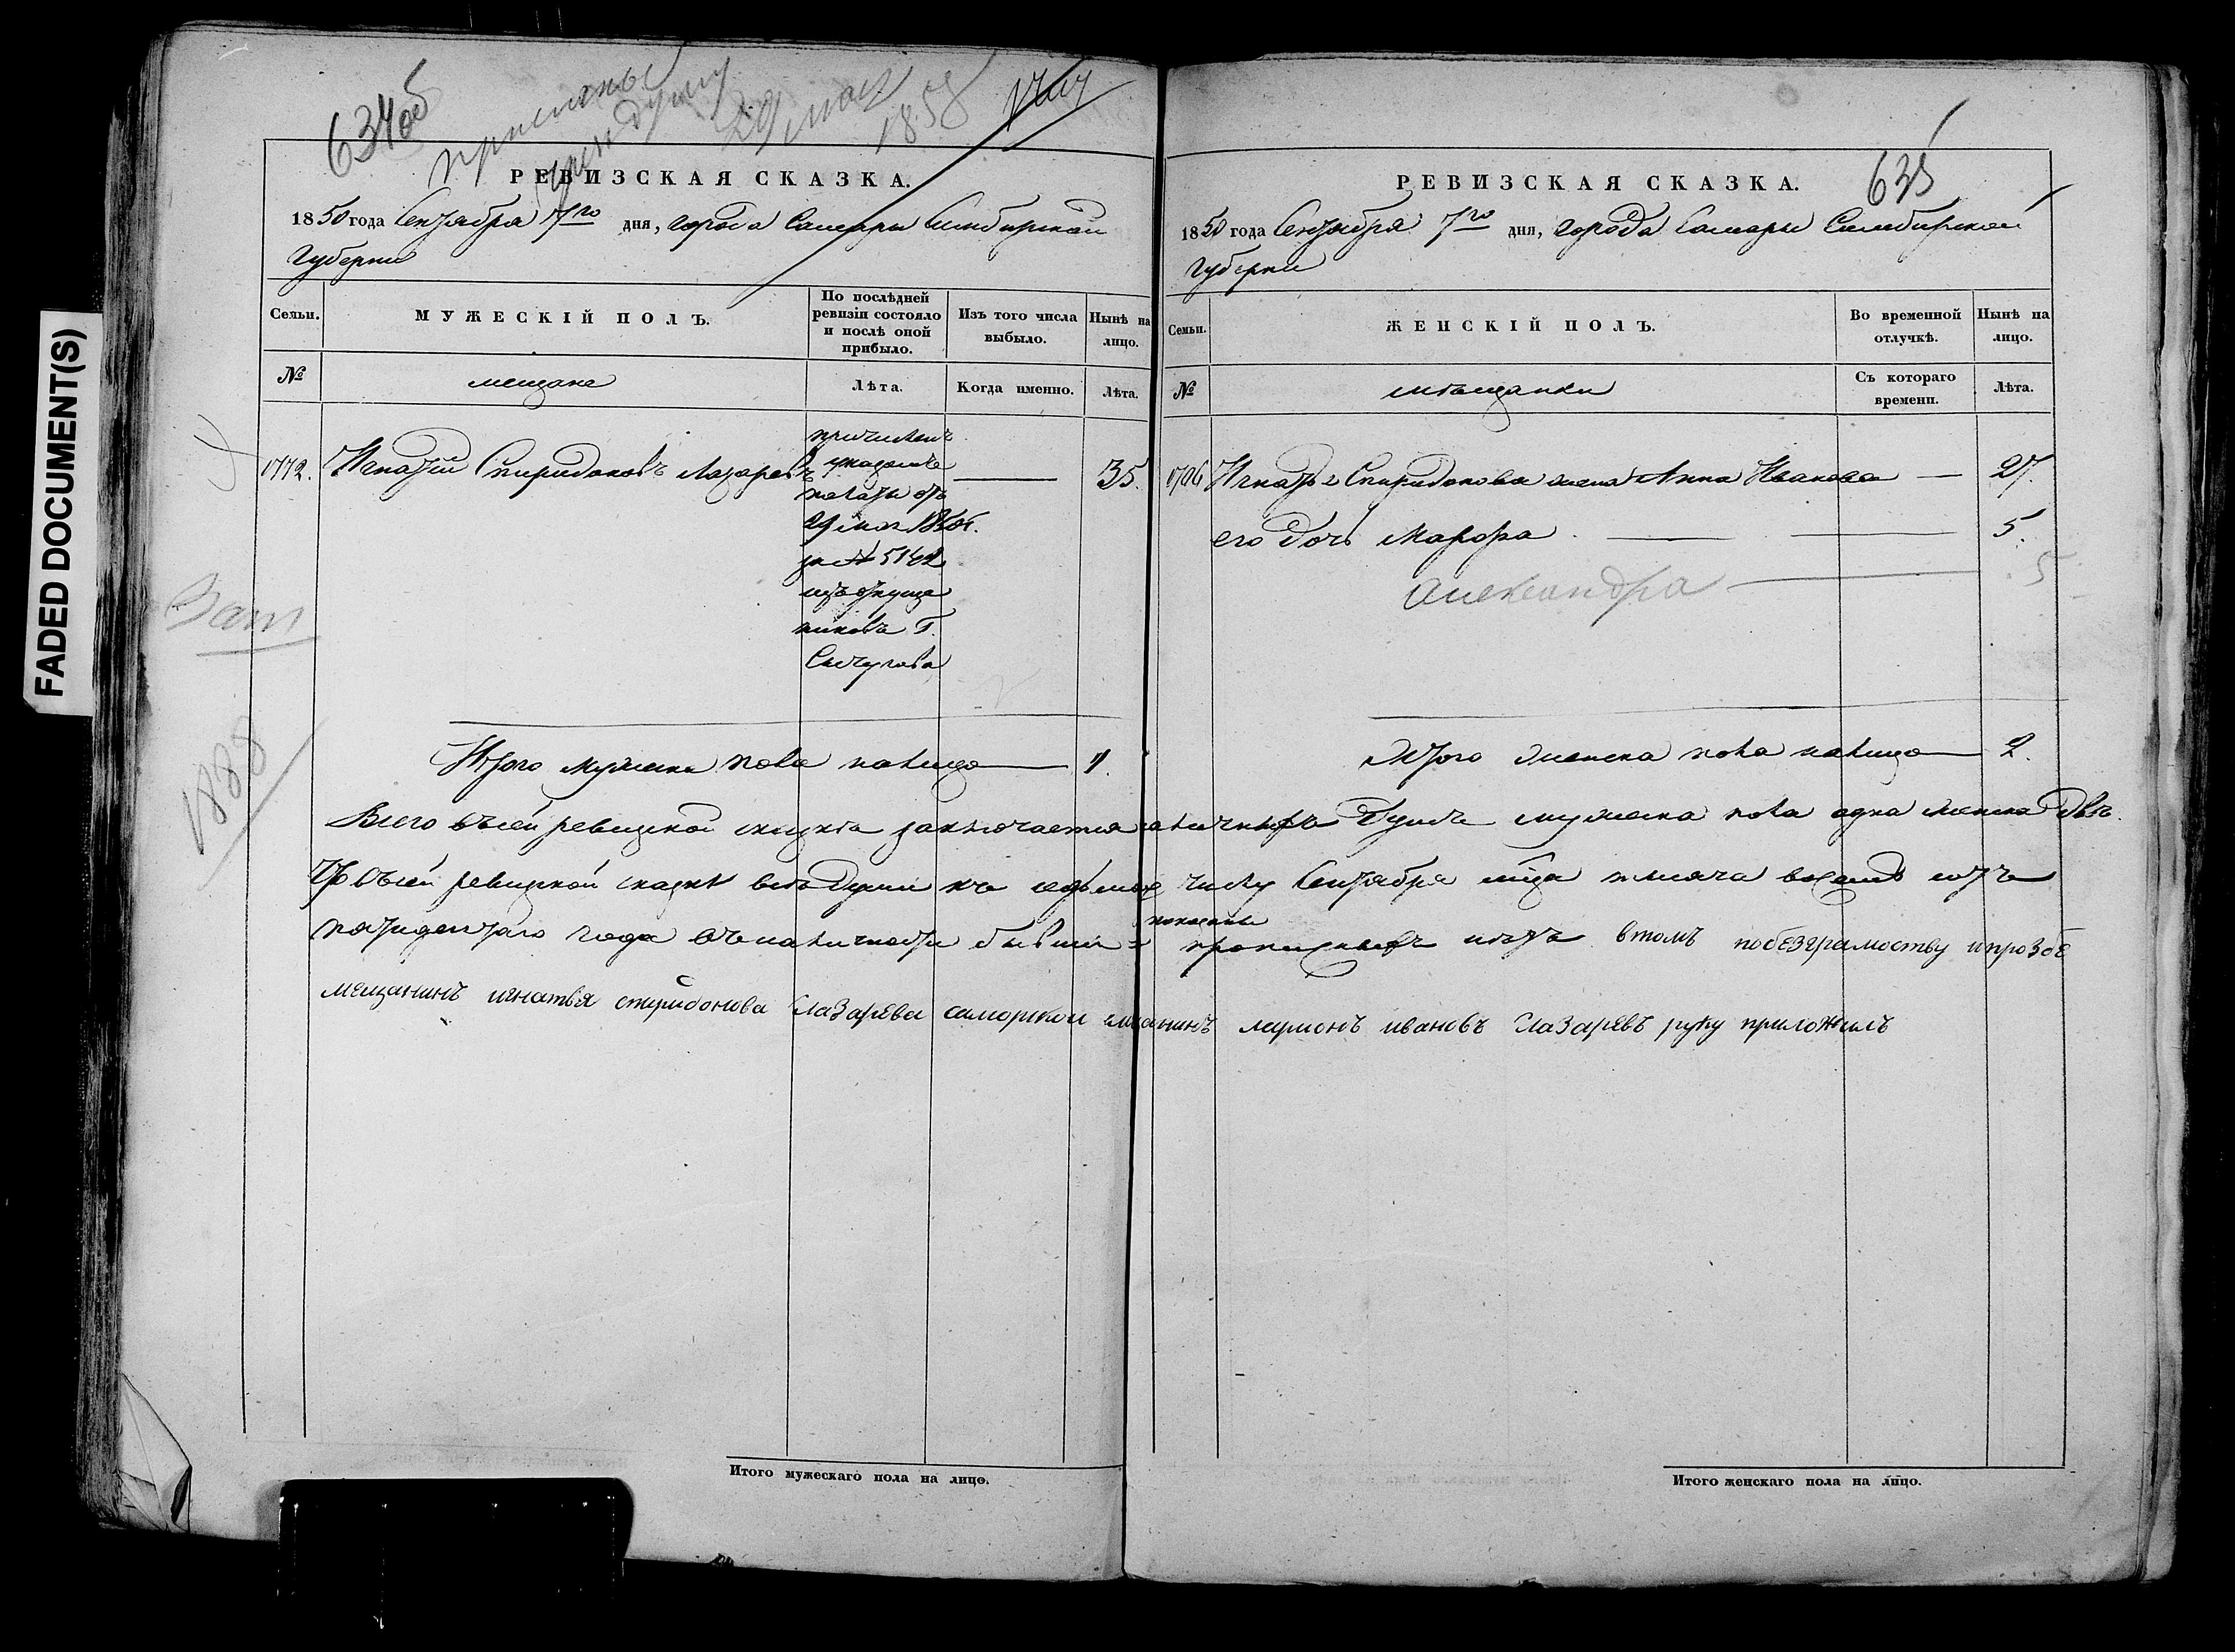 FADED DOCUMENT(S)
634об
29 мая
1858
РЕВИЗСКАЯ СКАЗКА.
1850 года Сентября 7го дня, города Самары Симбирской
Губернии
Семьи. МУЖЕСКІЙ ПОЛЪ. По послѣдней ревизіи состояло и послѣ оной прибыло. Изъ того числа выбыло. Нынѣ на лицо.
№ мещане Лѣта. Когда именно. Лѣта.
1772. Игнатий Спиридоновъ Лазаревъ 35.
причисленъ
указомъ
палаты отъ
29 мая
за № 5142
изъ отпуще
никовъ Г.
Зап
1888
Итого мужеска пола налицо 1.
635
РЕВИЗСКАЯ СКАЗКА.
1850 года Сентября 7го дня, города Самары Симбирской
Губернии
Семьи. ЖЕНСКІЙ ПОЛЪ. Во временной отлучкѣ. Нынѣ на лицо.
№ мѣщанки Съ котораго времени. Лѣта.
Игнатья Спиридонова жена Анна Иванова 27.
его дочь Марфра 5.
Александра 5
Итого женска пола налицо 2.
Всего въ сей ревизской сказкѣ заключается наличныхъ душъ мужеска пола одна женска двѣ.
Что въ сей ревизской сказкѣ всѣ души къ седьмое числу Сентября мца тысяча восемь сотъ
пятидесятаго года въ наличности бывшие показаны
прописныхъ нѣтъ в томъ побезграмоству ипрозбе
мещанинъ игнатья спиридонова Лазарева саморской мщанинъ ларионъ ивановъ Лазаревъ руку приложилъ
Итого мужескаго пола на лицо.
Итого женскаго пола на лицо.